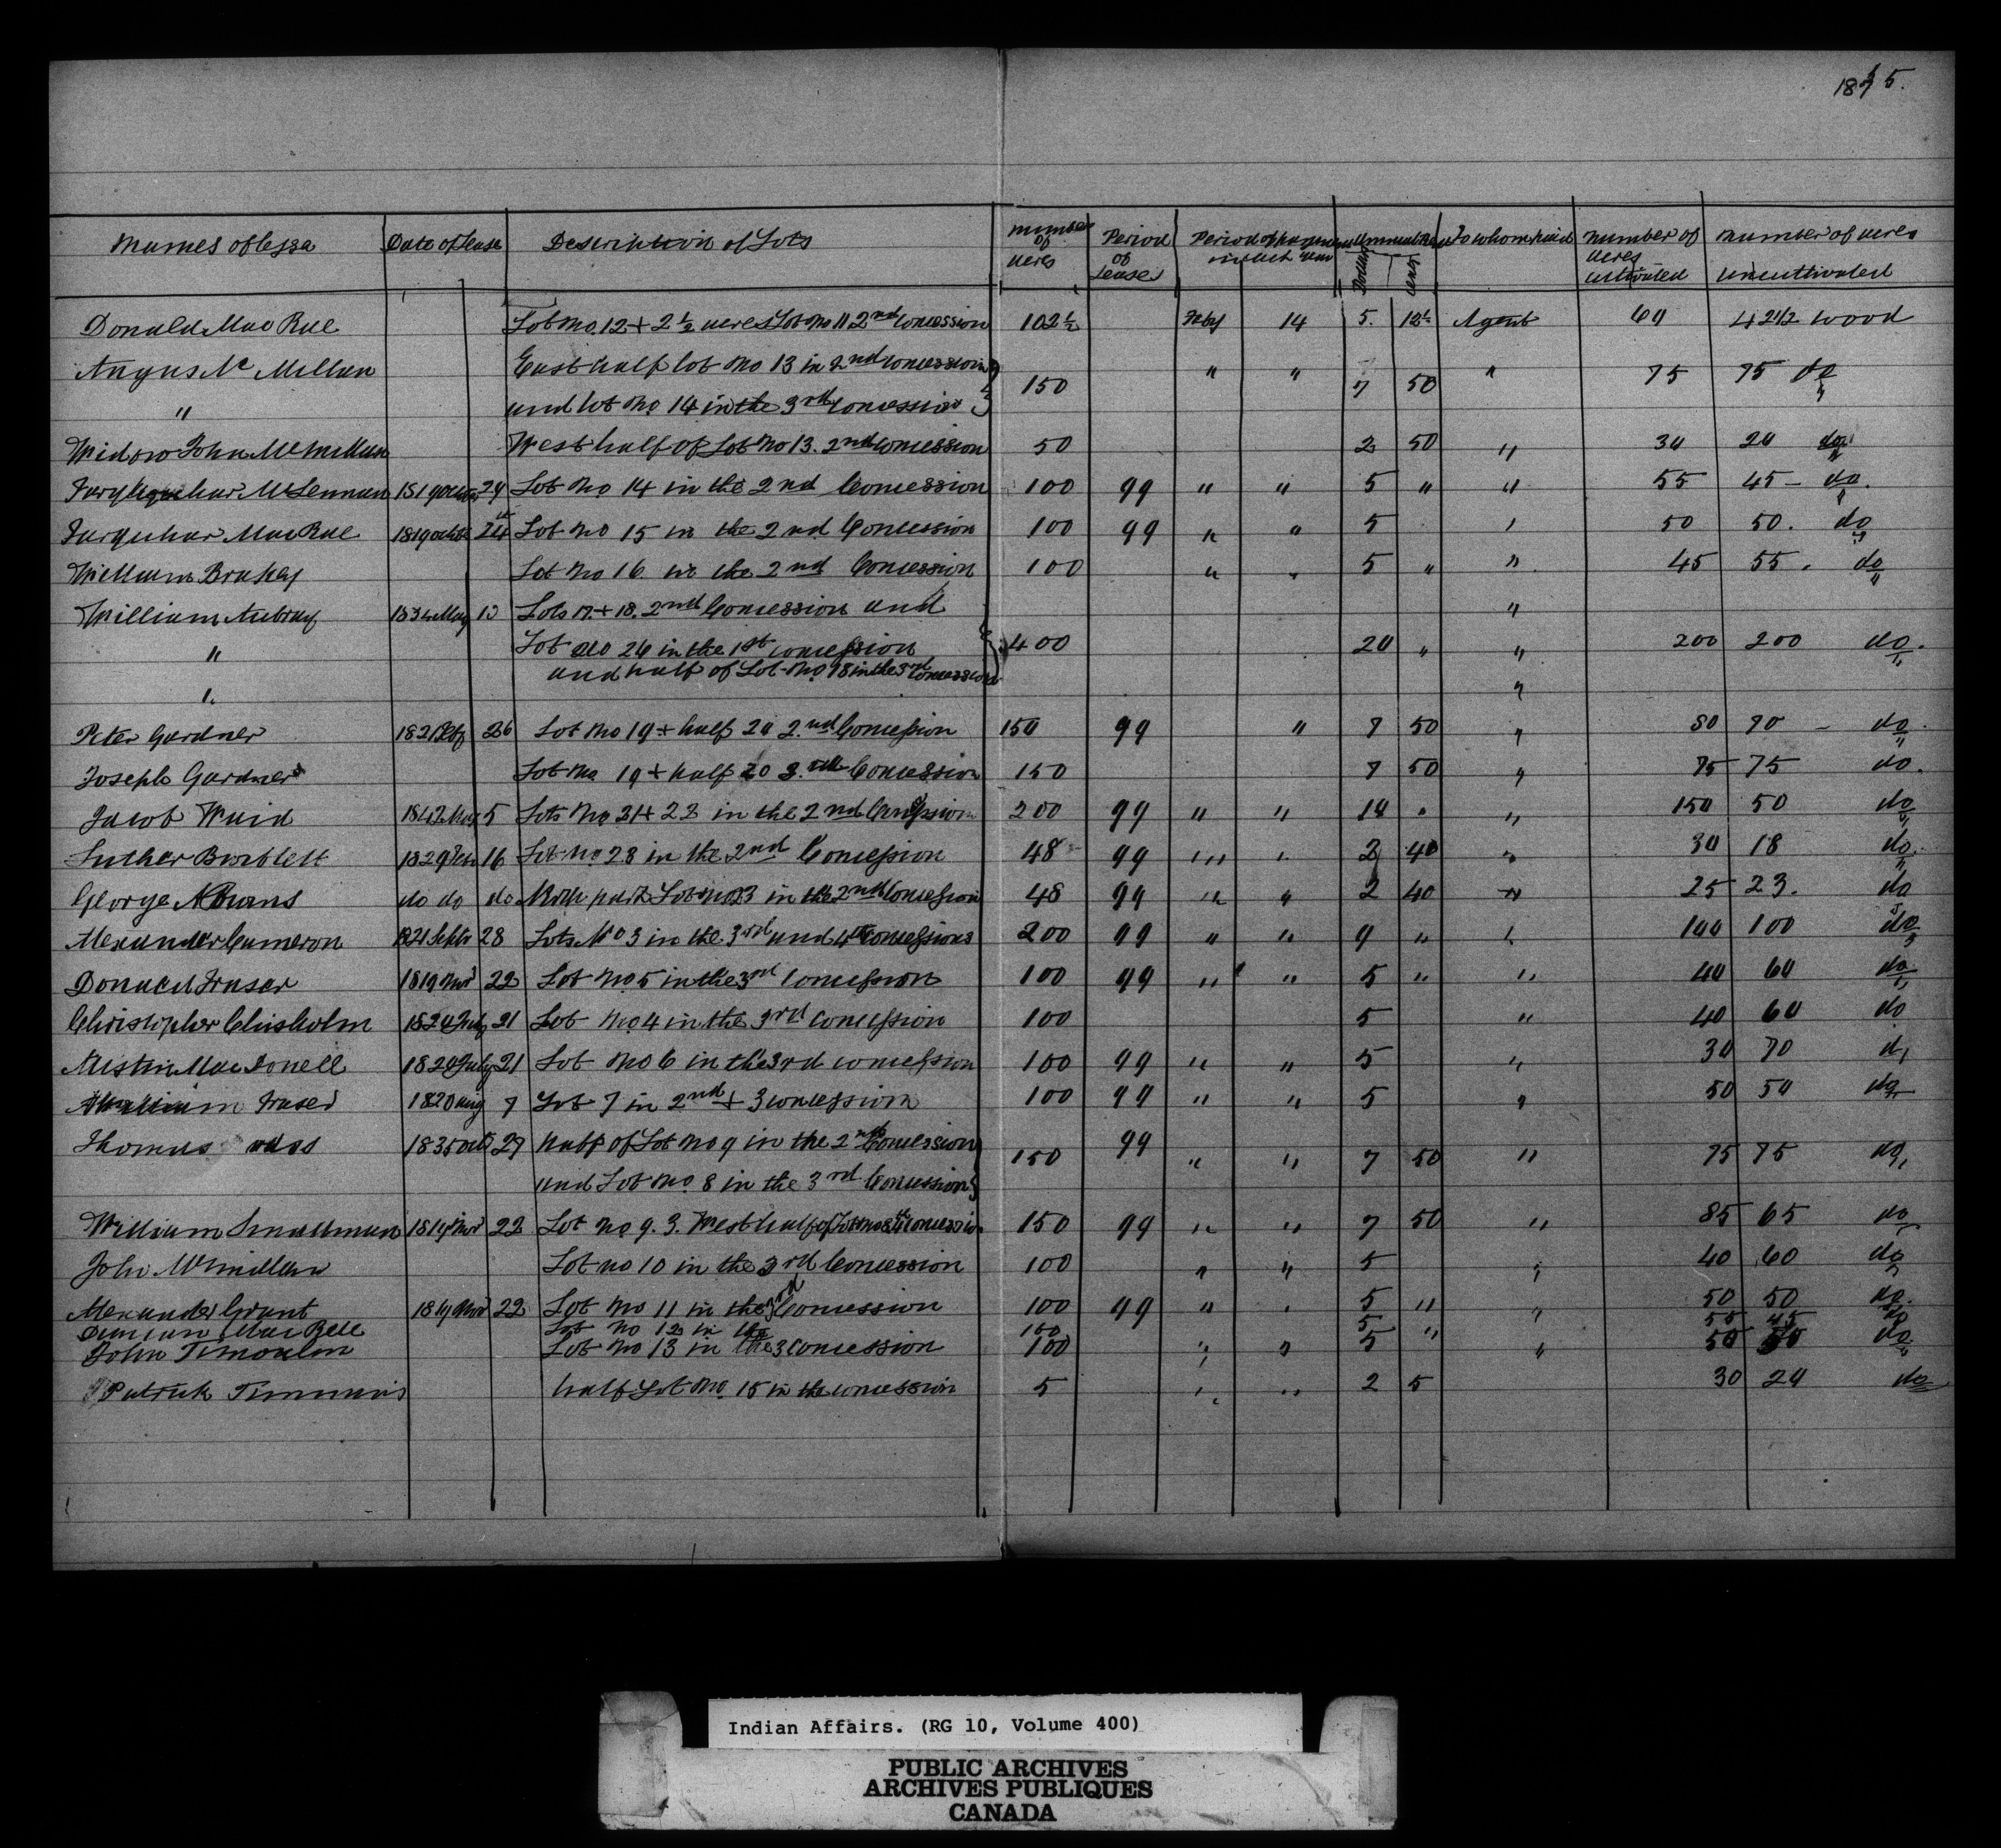 1875.
Names of Lessa Date of Lease Description of Lots Number of acres Period of Leases Period of payment in each year Annual Rent Dollars cents To whom paid Number of acres cultivated Number of acres uncultivated
Donald Mac Rae Lot No. 12 + 2 1/2 acres Lot No 11 2nd Concession 102 1/2 Feby 14 5. 12 1/2 Agent 60 42 1/2 wood
Angus Mc Millan East half lot No 13 in 2nd concession " " " 75 75 do
" and lot No 14 in the 3rd Concession 150 7 50
Widow John McMillan West half of Lot No 13. 2nd Concession 50 2 50 " 30 20 do
Farquhar McLennan 1819 October 24 Lot No 14 in the 2nd Concession 100 99 " " 5 " " 55 45 - do.
Farquhar MacRae 1819 octobr 24 Lot No 15 in the 2nd Concession 100 99 " " 5 " 50 50. do
William Brakey Lot No 16 in the 2nd Concession 100 " " 5 " " 45 55. do
William Aubray 1834 May 10 Lots 17. + 18. 2nd Concession and "
" Lot No 26 in the 1st concession 400 20 " " 200 200 do.
and half of Lot No 18 in the 3rd Concession
" "
Peter Gardner 1821 26 Lot No 19 + half 20 2.nd Concession 150 99 " 7 50 " 80 70 - do.
Joseph Gardner Lot No 19 + half 20 3.rd Concession 150 7 50 " 75 75 do.
Jacob Waid 1842 May 5 Lots No 21 + 22 in the 2nd Concession 200 99 " " 10 " " 150 50 do
Luther Bartlett 1829 16 Lot No 23 in the 2nd Concession 48 99 " " 2 40 " 30 18 do.
George N Burns do do do North part Lot No 23 in the 2nd Concession 48 99 " " 2 40 " 25 23. do
Alexander Cameron 1821 Septr 28 Lots No 3 in the 3rd and 4th Concessions 200 99 " " 9 " " 100 100 do
Donald Fraser 1819 Novr 22 Lot No 5 in the 3rd Concession 100 99 " " 5 " " 40 60 do
Christopher Chisholm 1820 July 21 Lot No 4 in the 3rd concession 100 5 " 40 60 do
Austin Mac Donell 1820 July 21 Lot No 6 in the 3rd concession 100 99 " " 5 " 30 70 do
William Fraser 1820 Aug 7 Lot 7 in 2nd + 3 concession 100 99 " " 5 " 50 50 do
Thomas 1835 Oct 27 half of Lot No 9 in the 2nd Concession 150 99 " " 7 50 " 75 75 do
and Lot No 8 in the 3rd Concession
William Smallman 1819 Novr 22 Lot No 9. 3. West half of Lot No 8 Concession 150 99 " " 7 50 " 85 65 do
John McMillan Lot no 10 in the 3rd Concession 100 " " 5 " 40 60 do
Alexander Grant 1819 Novr 22 Lot No 11 in the 3rd Concession 100 99 " " 5 " " 50 50 do.
Duncan MacRae Lot No 12 in the 100 5 " 55 45 do
John Lot No 13 in the 3 Concession 100 " " 5 " 50 50 do
Patrick Timmins half Lot No. 15 in the concession 5 " " 2 5 30 20 do
Indian Affairs. (RG 10, Volume 400)
PUBLIC ARCHIVES
ARCHIVES PUBLIQUES
CANADA